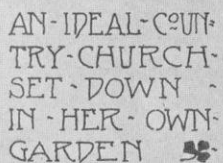 AN-IDEAL-COUN-
TRY-CHURCH-
SET-DOWN-
IN-HER-OWN-
GARDEN